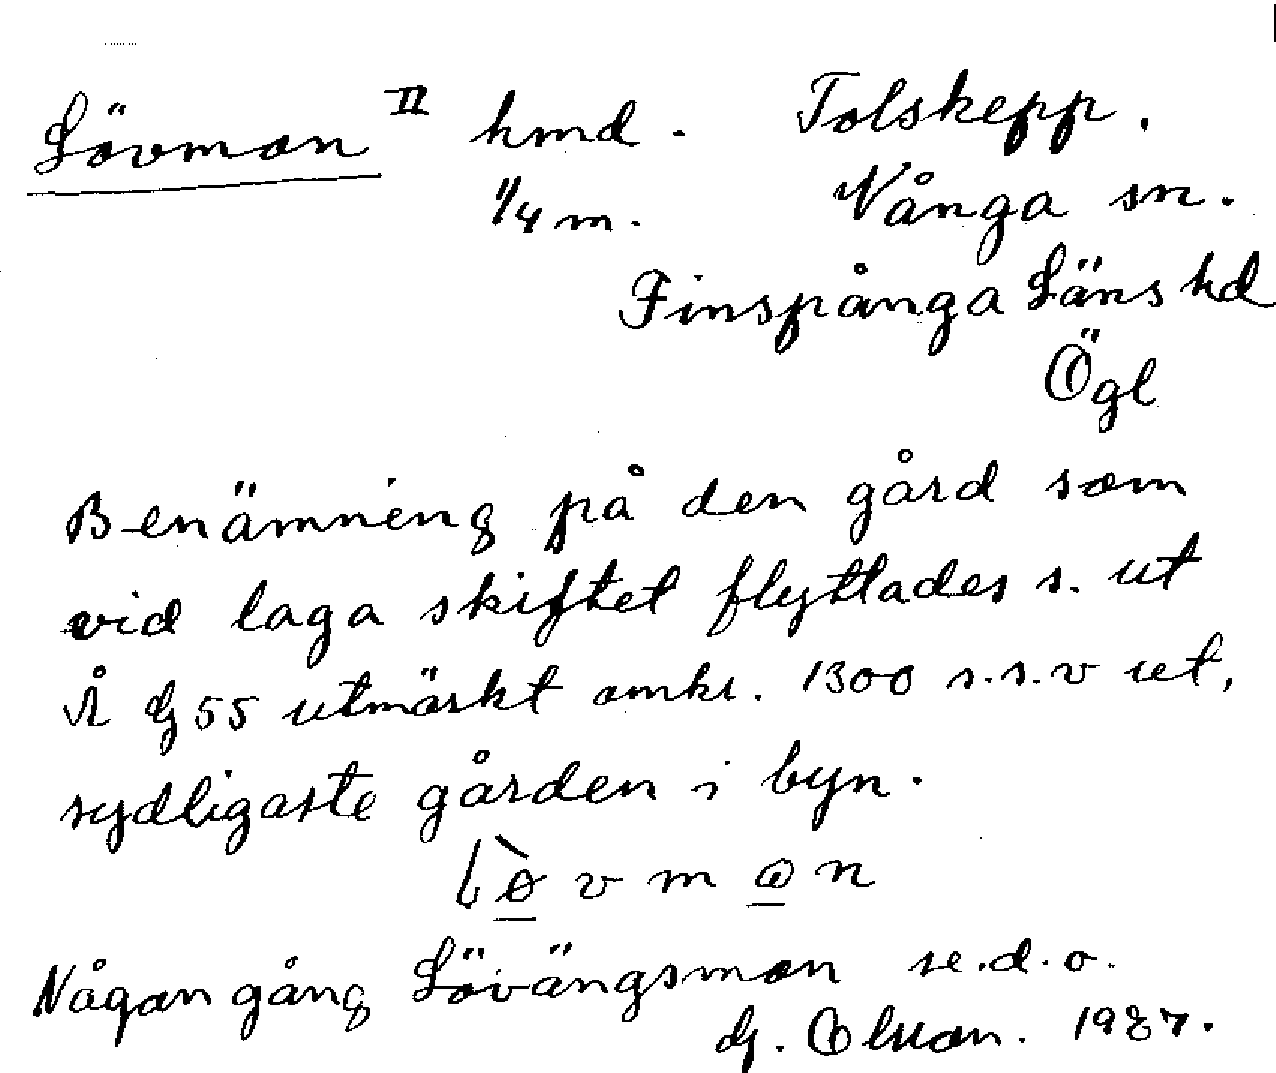 Lövmon II hmd. Tolskepp.
1/4 m. Vånga sn.
Finspånga Läns hd
Ögl
Benämning på den gård som
vid laga skiftet flyttades s. ut
Å G 55 utmärkt omkr. 1300 s.s.v ut,
sydligaste gården i byn.
v m n
Någon gång Lövängsmon se.d.o.
G. 1937.